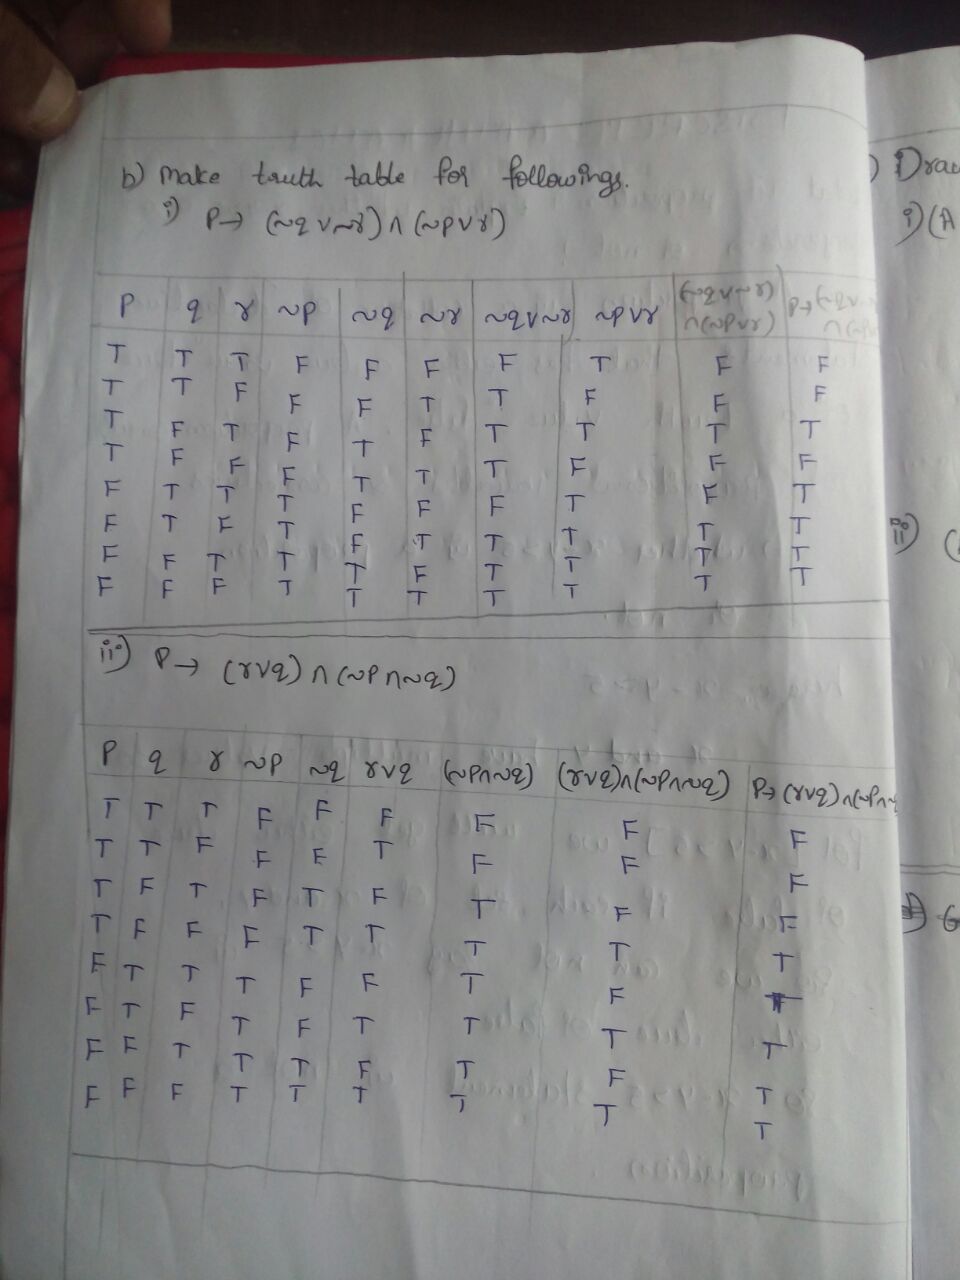 b) Make truth table for followings.
i) P→ (~q v ~r) ∩ (~p v r)
P q r ~p ~q ~r ~q v ~r ~p v r (~q v ~r) ∩ (~p v r) P→ (~q v ∩ (~p v
T T T F F F F T F F
T T F F F T T F F F
T F T F T F T T T T
T F F F T T T F F F
F T T T F F F T F T
F T F T F T T T T T
F F T T T F T T T T
F F F T T T T T T T
ii) P→ (r v q) ∩ (~p ∩ ~q)
P q r ~p ~q r v q (~p ∩ ~q) (r v q) ∩ (~p ∩ ~q) P→ (r v q) ∩ (~p ∩
T T T F F F F F F
T T F F F T F F F
T F T F T F T F F
T F F F T T T T T
F T T T F F T F
F T F T F T T T T
F F T T T F T F T
F F F T T T T T T
) Draw
i) (A
ii) (